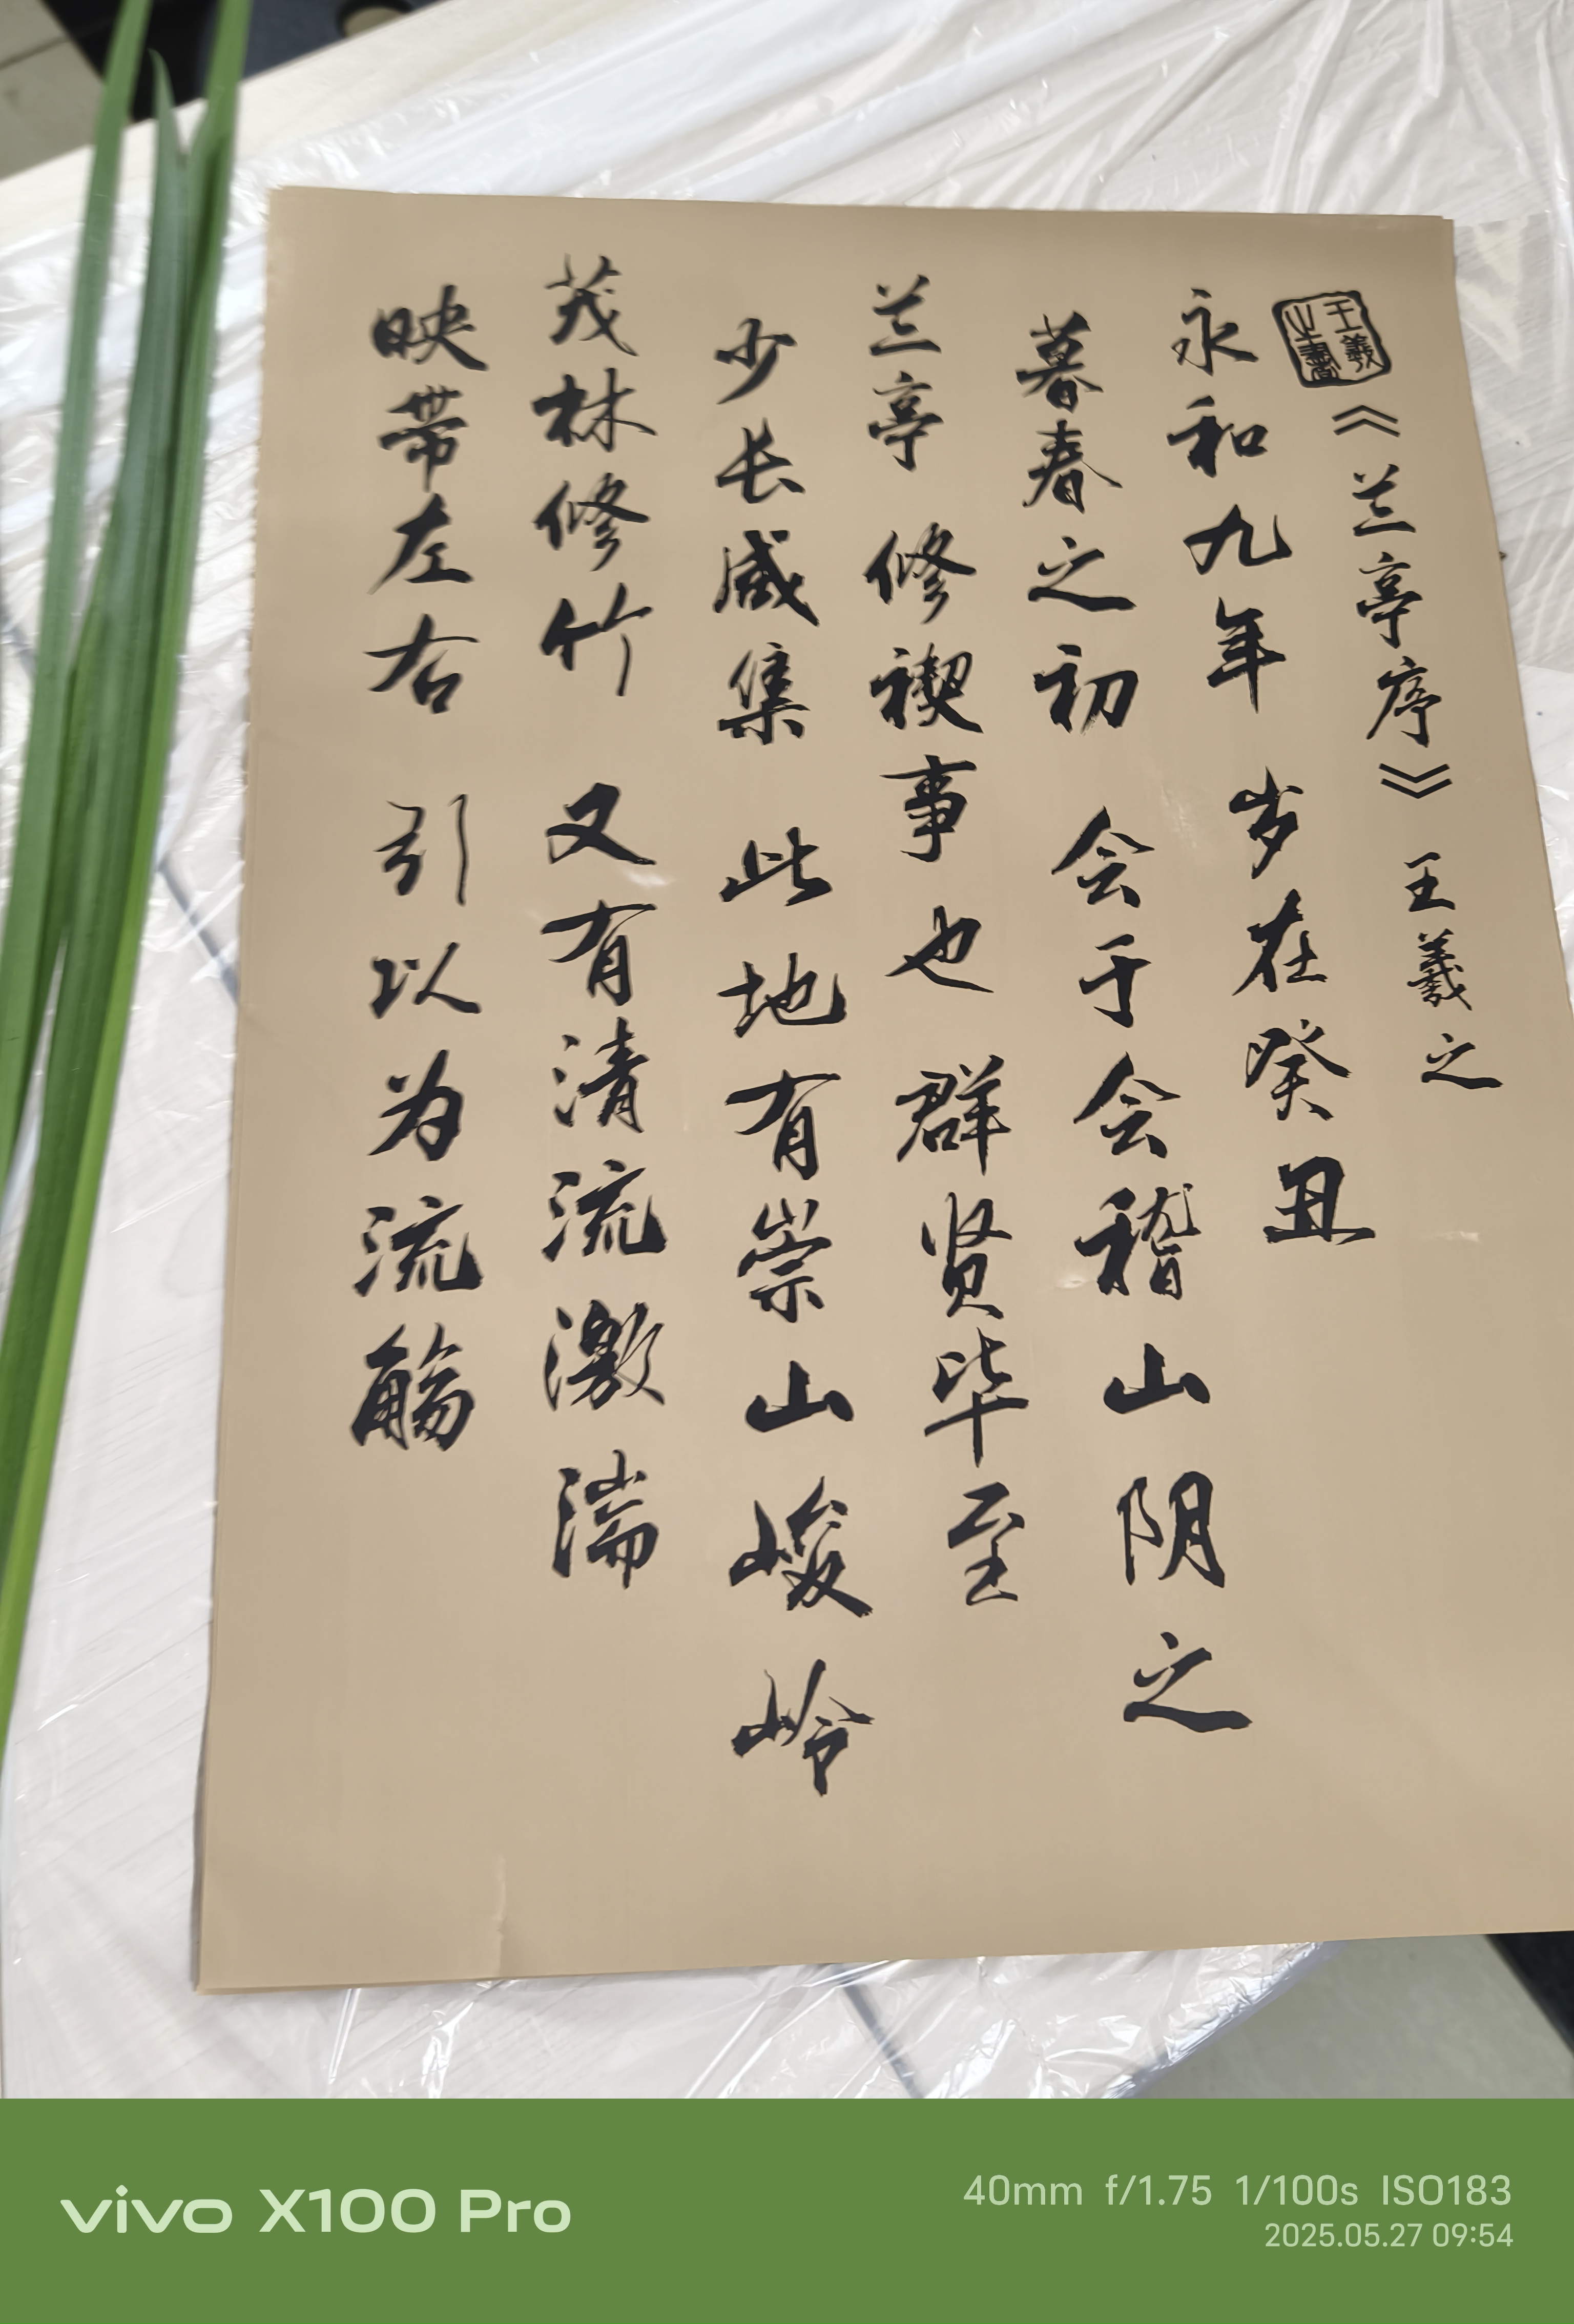 王羲之書
《兰亭序》 王羲之
永和九年 岁在癸丑
暮春之初 会于会稽山阴之
兰亭 修禊事也 群贤毕至
少长咸集 此地有崇山峻岭
茂林修竹 又有清流激湍
映带左右 引以为流觞
vivo X100 Pro
40mm f/1.75 1/100s ISO183
2025.05.27 09:54